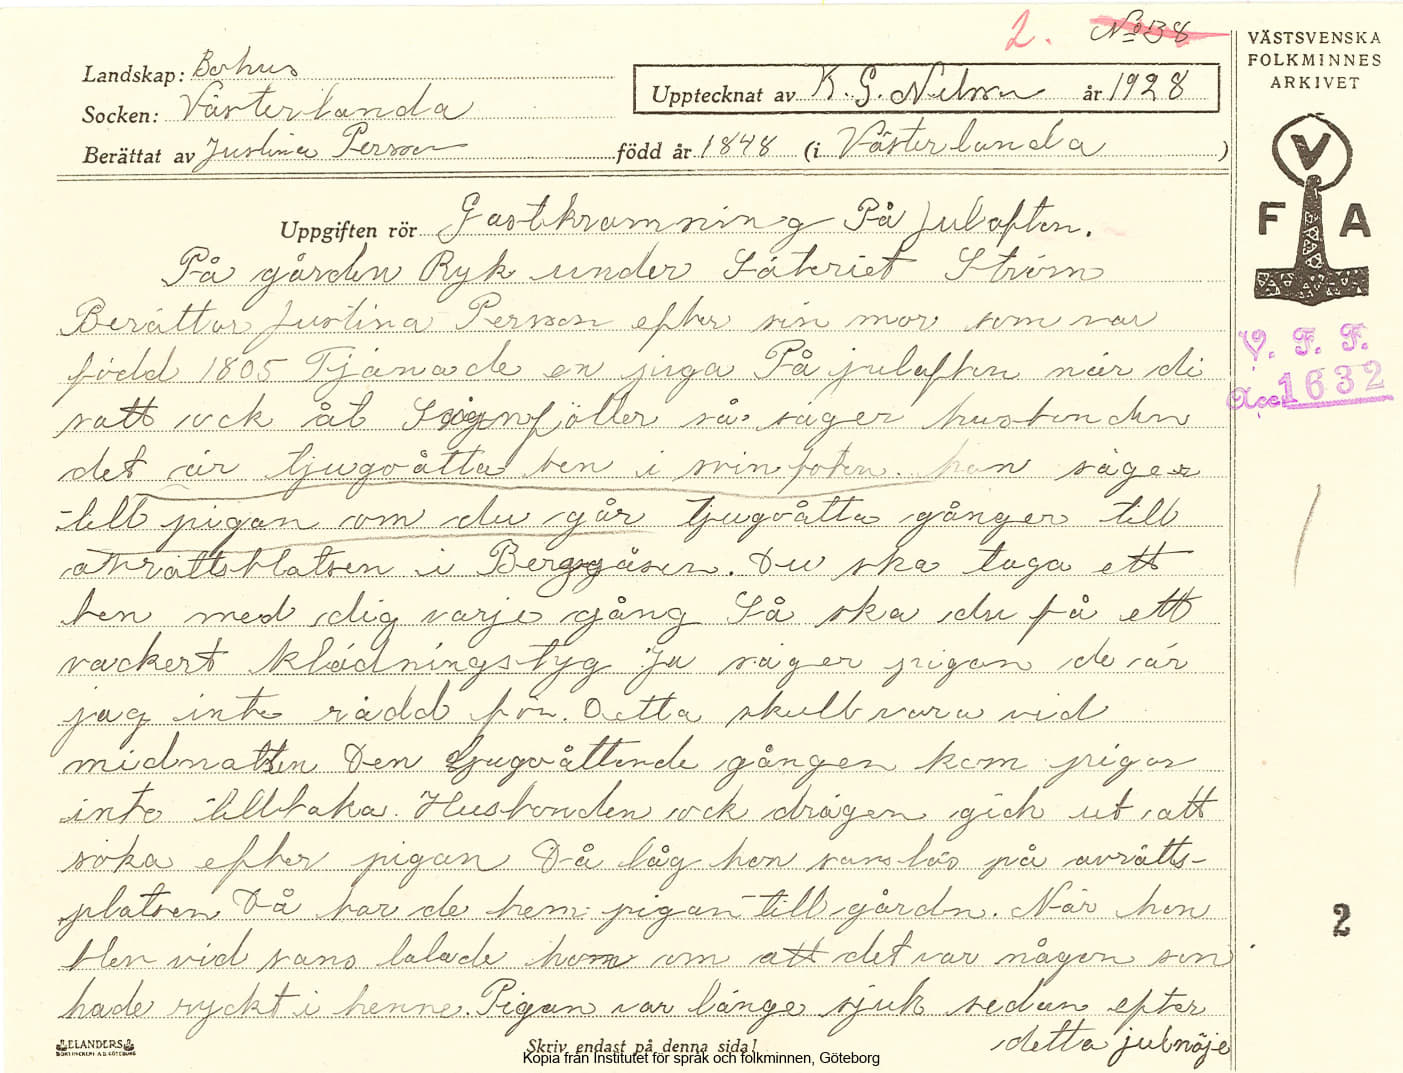 2. No 38
VÄSTSVENSKA
FOLKMINNES
ARKIVET
Landskap: Bohus
Socken: Västerlanda
Upptecknat av K. G. Nilson år 1928
Berättat av Justina Persson född år 1848 (i Västerlanda )
V
F A
V. F. F.
Acc. 1632
Uppgiften rör Gastkramning På Julafton.
På gården Ryk under Säteriet Ström
Berättar Justina Persson efter sin mor som var
född 1805 Tjänade en piga På julafton när di
satt ock åt så säger husbonden
det är tjugoåtta ben i svinfoten. han säger
till pigan om du går tjugoåtta gånger till
avrättsplatsen i Bergsåsen. Du ska taga ett
ben med dig varje gång Så ska du få ett
vackert klädningstyg Ja säger pigan de är
jag inte rädd för. Detta skulle vara vid
midnatten Den tjugoåttende gången kom pigan
inte tillbaka. Husbonden ock drägen gick ut att
söka efter pigan Då låg hon sanslös på avrätts-
platsen Då bar de hem pigan till gårdn. När hon
blev vid sans talade hon om att det var någon som
hade ryckt i henne. Pigan var länge sjuk sedan efter
detta julnöje
2
ELANDERS
BOKTRYCKERI A.B. GÖTEBORG
Skriv endast på denna sida!
Kopia från Institutet för språk och folkminnen, Göteborg